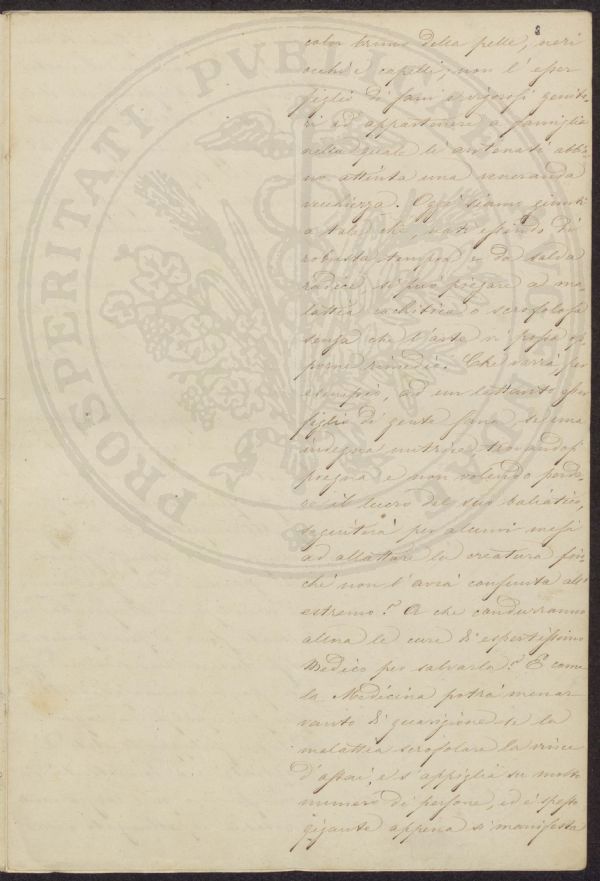 8
color bruno della pelle, neri
occhi e capelli, non l'esser
figli di sani e vigorosi genito-
ri ed appartenere a famiglia
nella quale li antenati abbia-
no attinta una veneranda
vecchiezza. Oggi siamo giunti
a tale che, nati essendo di
robusta tempra e da salda
radice, si può piegare a ma-
lattia rachitica o scrofolosa
senza che l'arte vi possa op-
porre rimedio. Che varrà per
esempio, ad un lattante esser
figlio di gente sana se una
indegna nutrice, trovandosi
pregna e non volendo perde-
re il lucro del suo baliatico,
seguiterà per alcuni mesi
ad allattare la creatura fin-
chè non l'avrà consunta all'
estremo? A che condurranno
allora le cure di espertissimo
Medico per salvarla? E come
la Medicina potrà menar
vanto di guarigione se la
malattia scrofolare la vince
d'assai, e s'appiglia su molto
numero di persone, ed è spesso
gigante appena si manifesta
PROSPERITATI PVBLICAE